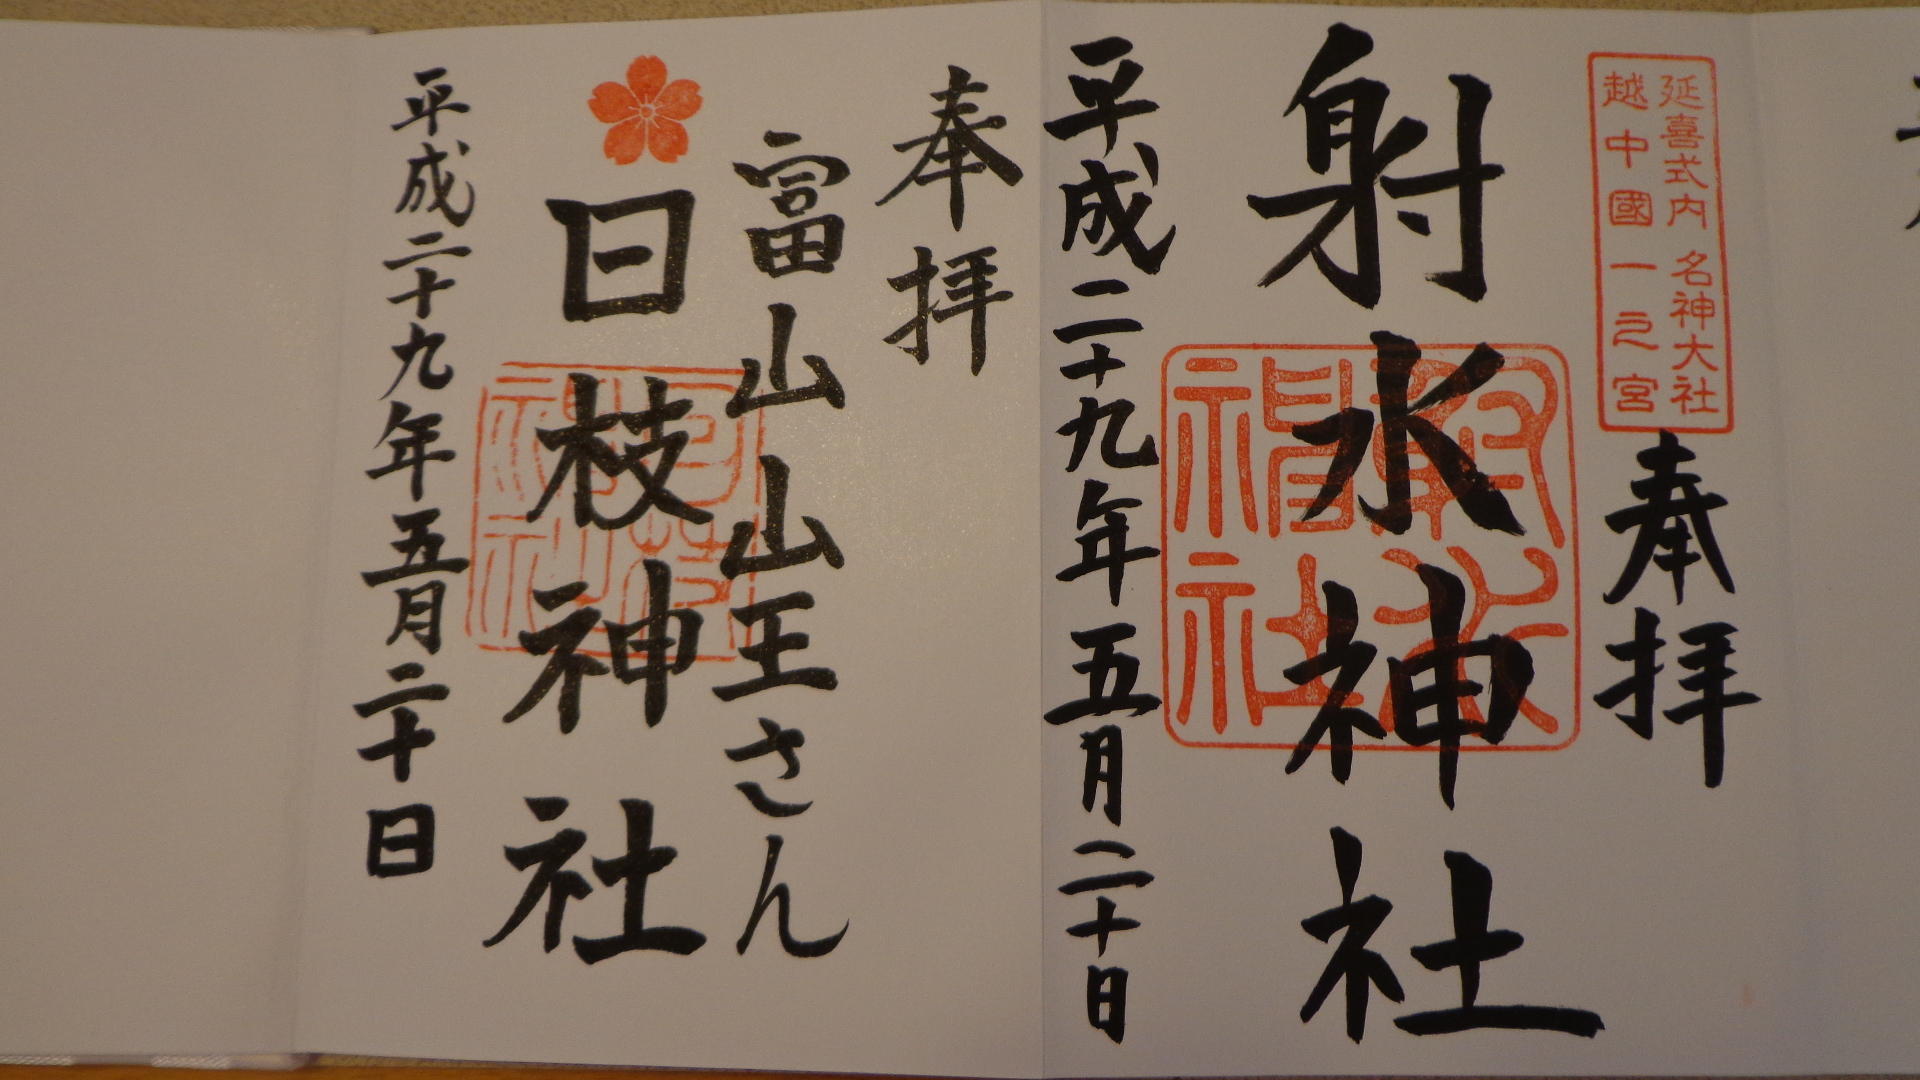 延喜式内 名神大社
越中國一之宮
奉拝
射水神社
平成二十九年五月二十日
奉拝
富山山王さん
日枝神社
平成二十九年五月二十日